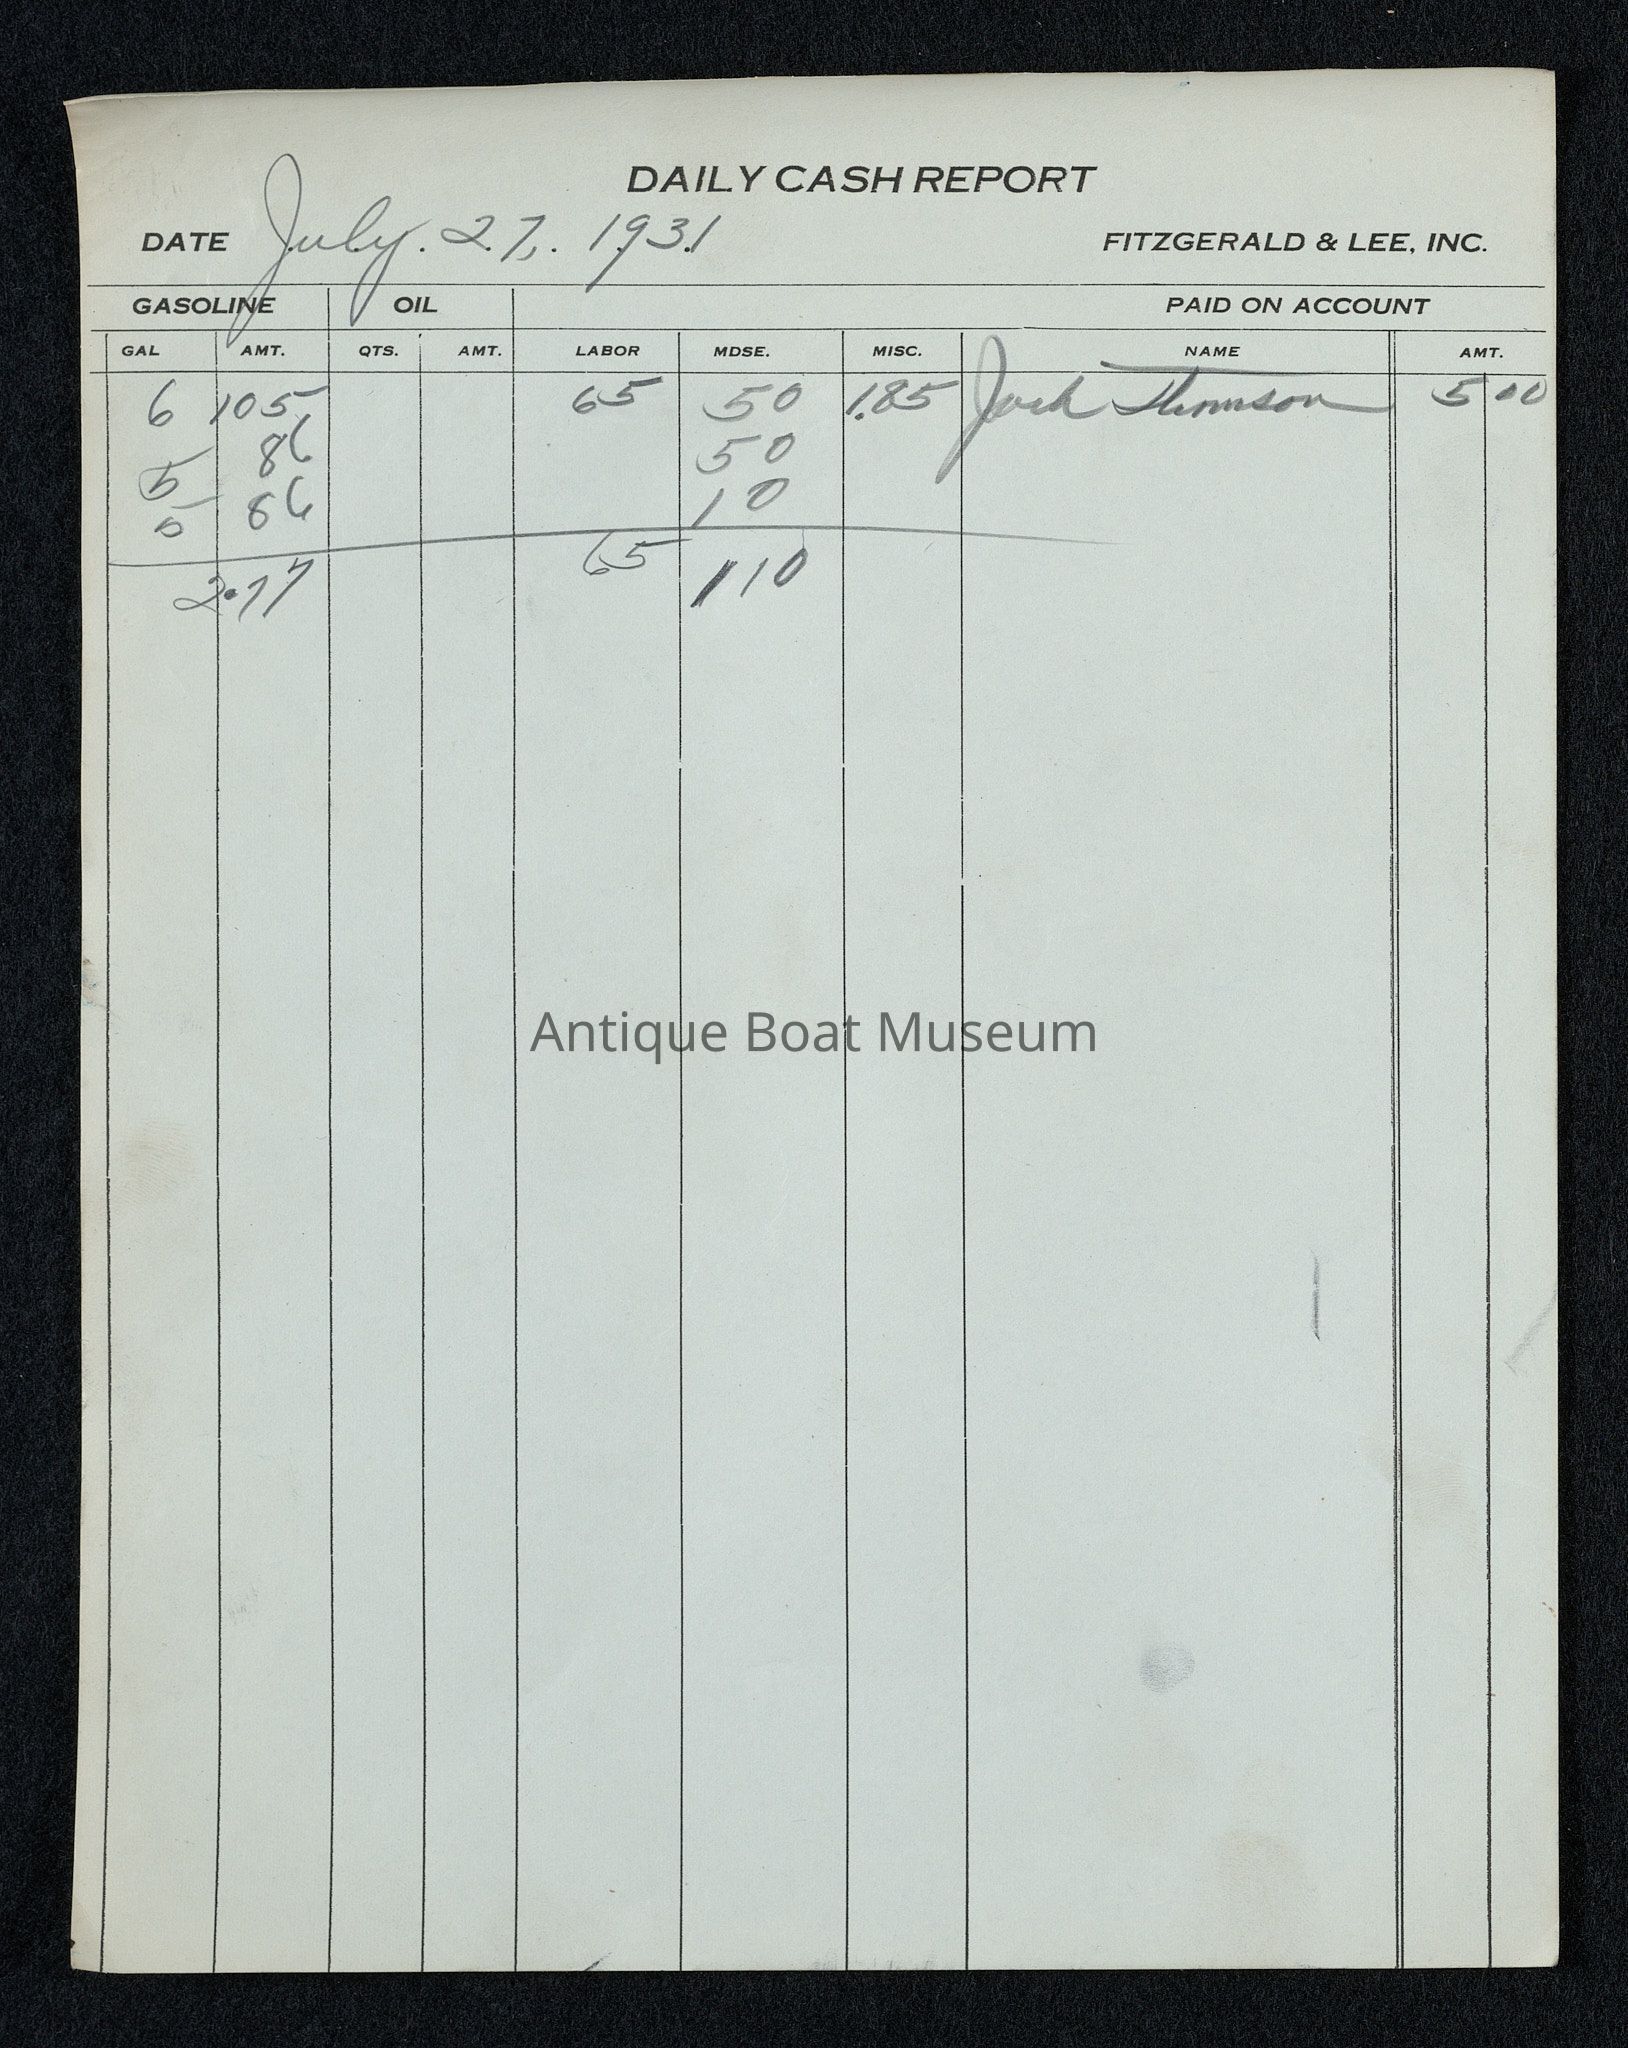 DAILY CASH REPORT
DATE July. 27,. 1931 FITZGERALD & LEE, INC.
GASOLINE OIL PAID ON ACCOUNT
GAL AMT. QTS. AMT. LABOR MDSE. MISC. NAME AMT.
6 105 65 50 1.85 Jack Thomson 5 00
5 86 50
5 86 10
2.77 65 110
Antique Boat Museum